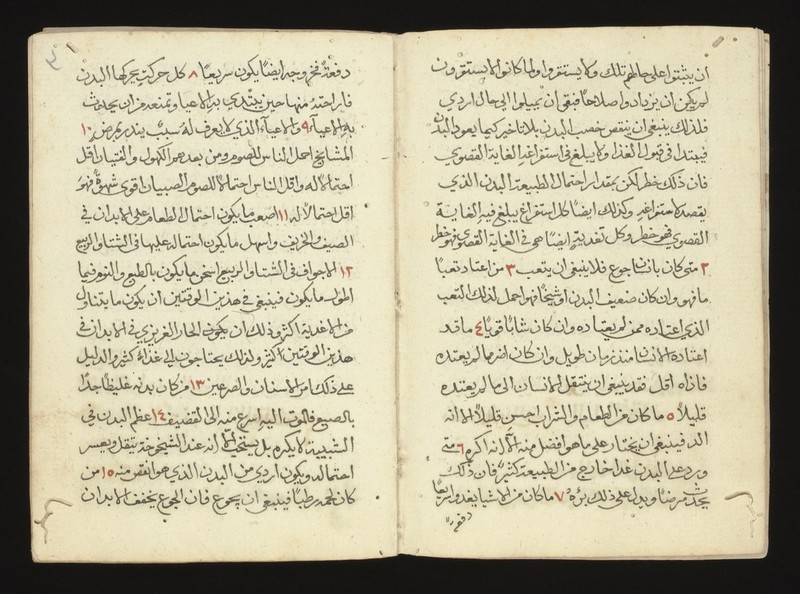 ان يثبتوا على حالهم تلك ولا يستقروا ولما كانوا لا يستقرون
لم يكن ان يزدادوا صلاحا فبقى ان يميلوا الى حال اردي
فلذلك ينبغى ان ينقص خصب البدن بلا تاخر كيما يعود البدن
فيبتدا فى قبول الغذا ولا يبلغ فى استفراغه الغاية القصوي
فان ذلك خطر لكن بمقدار احتمال الطبيعة البدن الذي
يقصد لاستفراغه وكذلك ايضا كل استفراغ يبلغ فيه الغاية
القصوي فهو خطر وكل تغدية ايضا هى فى الغاية القصوي فهو خطر
٢ متى كان بانسان جوع فلا ينبغى ان يتعب ٣ من اعتاد تعبا
ما فهو وان كان ضعيف البدن او شيخا فهو احمل لذلك التعب
الذي اعتاده ممن لم يعتاده وان كان شابا قويا ٤ ما قد
اعتاده الانسان منذ زمان طويل وان كان اضر مما لم يعتده
فاذاه اقل فقد ينبغى ان ينتقل الانسان الى ما لم يعتده
قليلا ٥ ما كان من الطعام والشراب احسن قليلا الا انه
الذ فينبغى ان يختار على ما هو افضل منه الا انه اكره ٦ متى
ورد على البدن غدا خارج من الطبيعة كثير فان ذلك
يحدث مرضا ويدل على ذلك برؤه ٧ ما كان من الاشيا يغدو سريعا
دفعة
دفعة فخروجه ايضا يكون سريعا ٨ كل حركة يحركها البدن
فاراحته منها حين يبتدي به الاعيا ويمنعه من ان يحدث
به الاعياء ٩ والاعياء الذي لا يعرف له سبب ينذر بمرض ١٠
المشايخ احمل الناس للصوم ومن بعدهم الكهول والفتيان اقل
احتمالا له واقل الناس احتمالا للصوم الصبيان اقوي شهوة فهو
اقل احتمالا له ١١ اصعب ما يكون احتمال الطعام على الابدان فى
الصيف والخريف واسهل ما يكون احتماله عليها فى الشتا والربيع
١٢ الاجواف فى الشتا والربيع اسخن ما يكون بالطبع والنوم فيما
اطول ما يكون فينبغى فى هذين الوقتين ان يكون ما يتناول
من الاغدية اكثر وذلك ان يكون الحار الغريزي فى الابدان فى
هذين الوقتين اكثر ولذلك يحتاجون الى غذاء كثير والدليل
على ذلك امر الاسنان والصرعين ١٣ من كان بدنه غليظا جدا
بالطبع فالموت اليه اسرع منه الى القضيف ١٤ عظم البدن فى
الشبيبة لا يكره بل يستحب الا انه عند الشيخوخة يثقل ويعسر
احتماله ويكون اردي من البدن الذي هو انقص منه ١٥ من
كان لحمه رطبا فينبغى ان يجوع فان الجوع يخفف الابدان